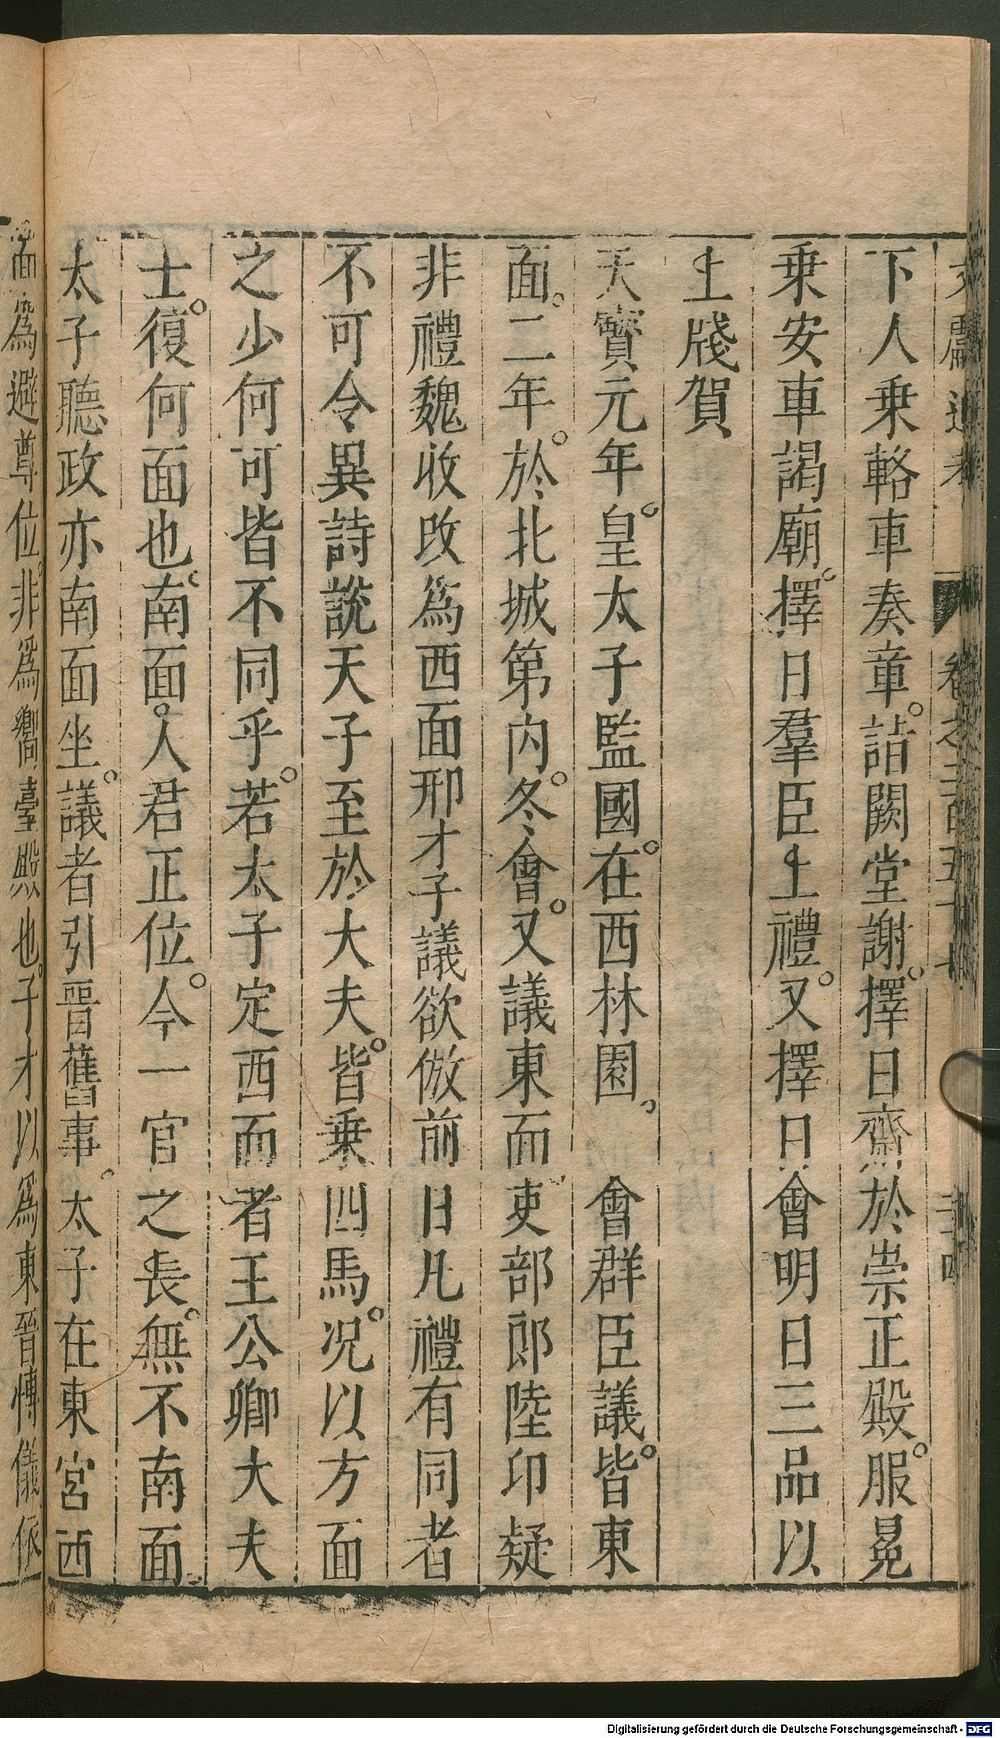 下人乗輅車奏章。詣闕堂謝。擇日齋於崇正殿。服冕
乗安車謁廟。擇日羣臣上禮。又擇日會明日三品以
上牋賀
天寳元年。皇太子監國。在西林園。會群臣議。皆東
面。二年。於北城第内。冬會。又議東面吏部郎陸印疑
非禮魏收改為西面邢才子議欲倣前日凡禮有同者
不可令異詩說天子至於大夫。皆乗四馬。况以方面
之少何可皆不同乎。若太子定西面者王公卿大夫
士。復何面也。南面。人君正位。今一官之長。無不南面
太子聽政亦南面坐。議者引晋舊事。太子在東宮西
面為避尊位。非為嚮臺殿也。子才以為東晉博儀依
卷之二百五十七
Digitalisierung gefördert durch die Deutsche Forschungsgemeinschaft - DFG